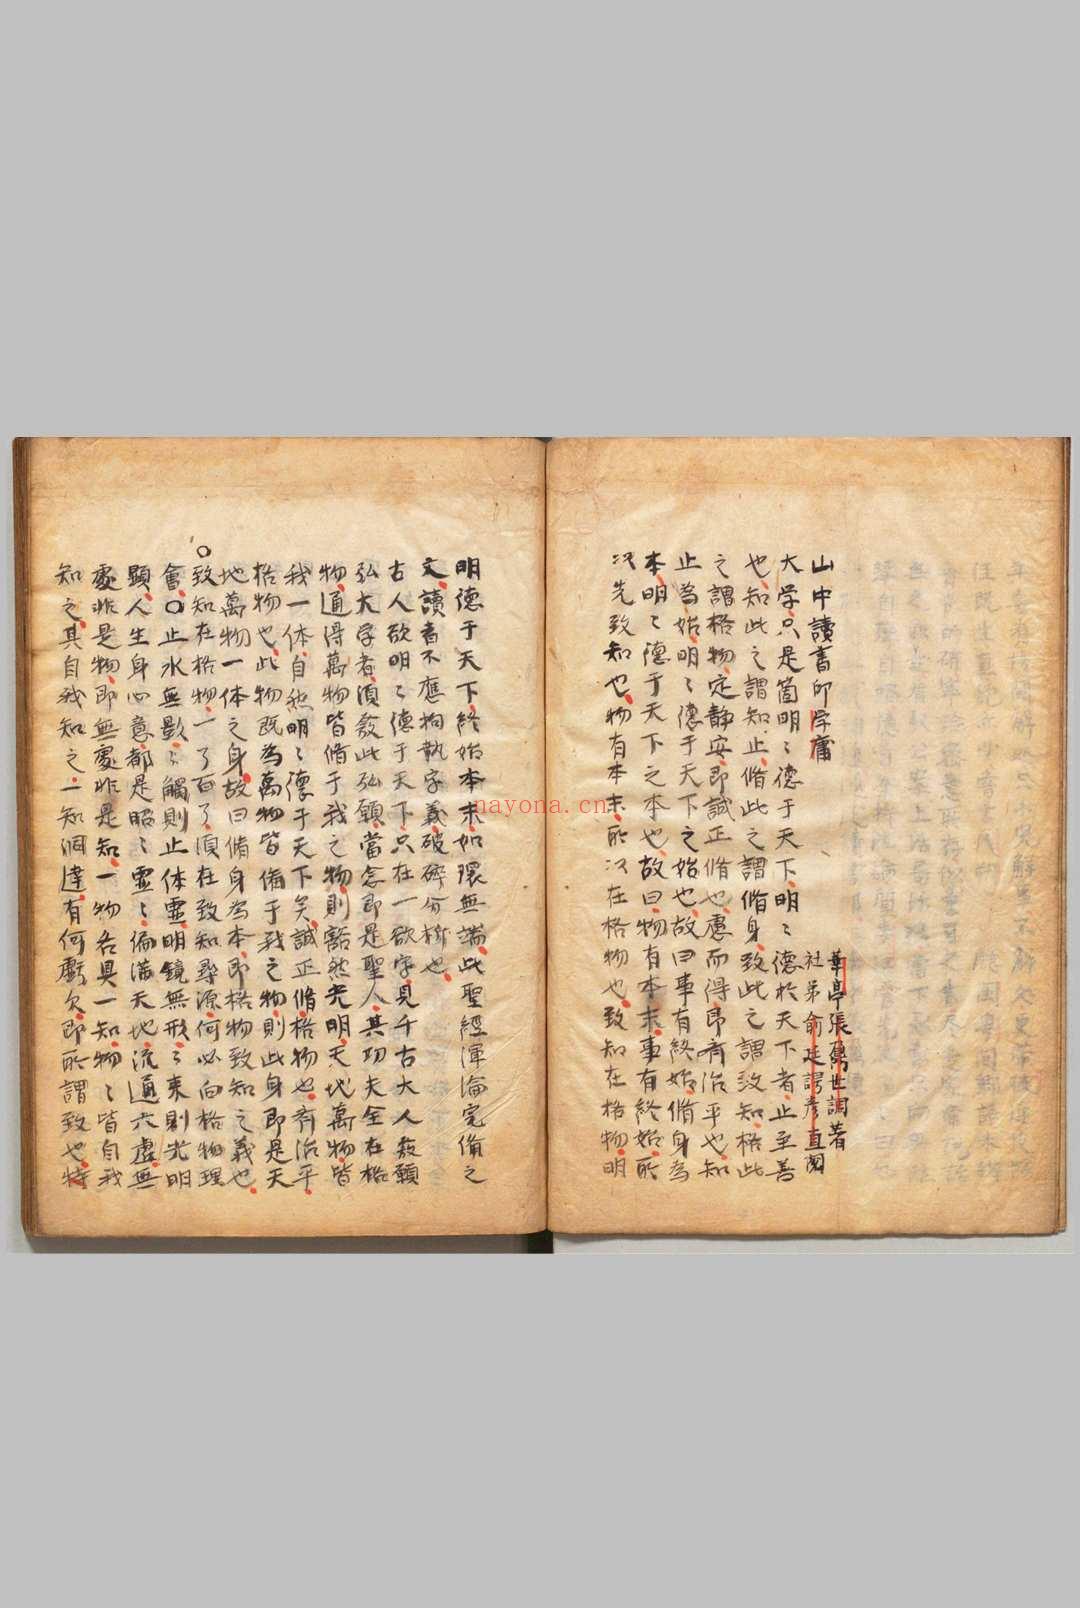 山中讀書印學庸
華亭張鼐世調著
社弟俞廷諤彥直閱
大学只是箇明〻德于天下明〻德於天下者止至善
也知此之謂知止脩此之謂脩身致此之謂致知格此
之謂格物定靜安即誠正脩也慮而得即齊治平也知
止為始明〻德于天下之始也故曰事有終始脩身為
本明〻德于天下之本也故曰物有本末事有終始所
以先致知也物有本末所以在格物也致知在格物明
明德于天下終始本末如環無端此聖經渾淪完俻之
文讀者不應拘執字義破碎分析也
古人欲明〻德于天下只在一欲字見千古大人發願
弘大学者湏發此弘願當念即是聖人其功夫全在格
物通得萬物皆俻于我之物則豁然光明天地萬物皆
我一体自然明〻德于天下矣誠正脩格物也齊治平
格物也此物既為萬物皆俻于我之物則此身即是天
地萬物一体之身故曰脩身為本即格物致知之義也
○致知在格物一了百了湏在致知尋源何必向格物理
會○止水無影〻觸則止体靈明鏡無形〻来則光明
顯人生身心意都是昭〻靈〻徧滿天地流通六虛無
處非是物即無處非是知一物各具一知物〻皆自我
知之其自我知之一知洞達有何虧欠即所謂致也特
nayona.cn